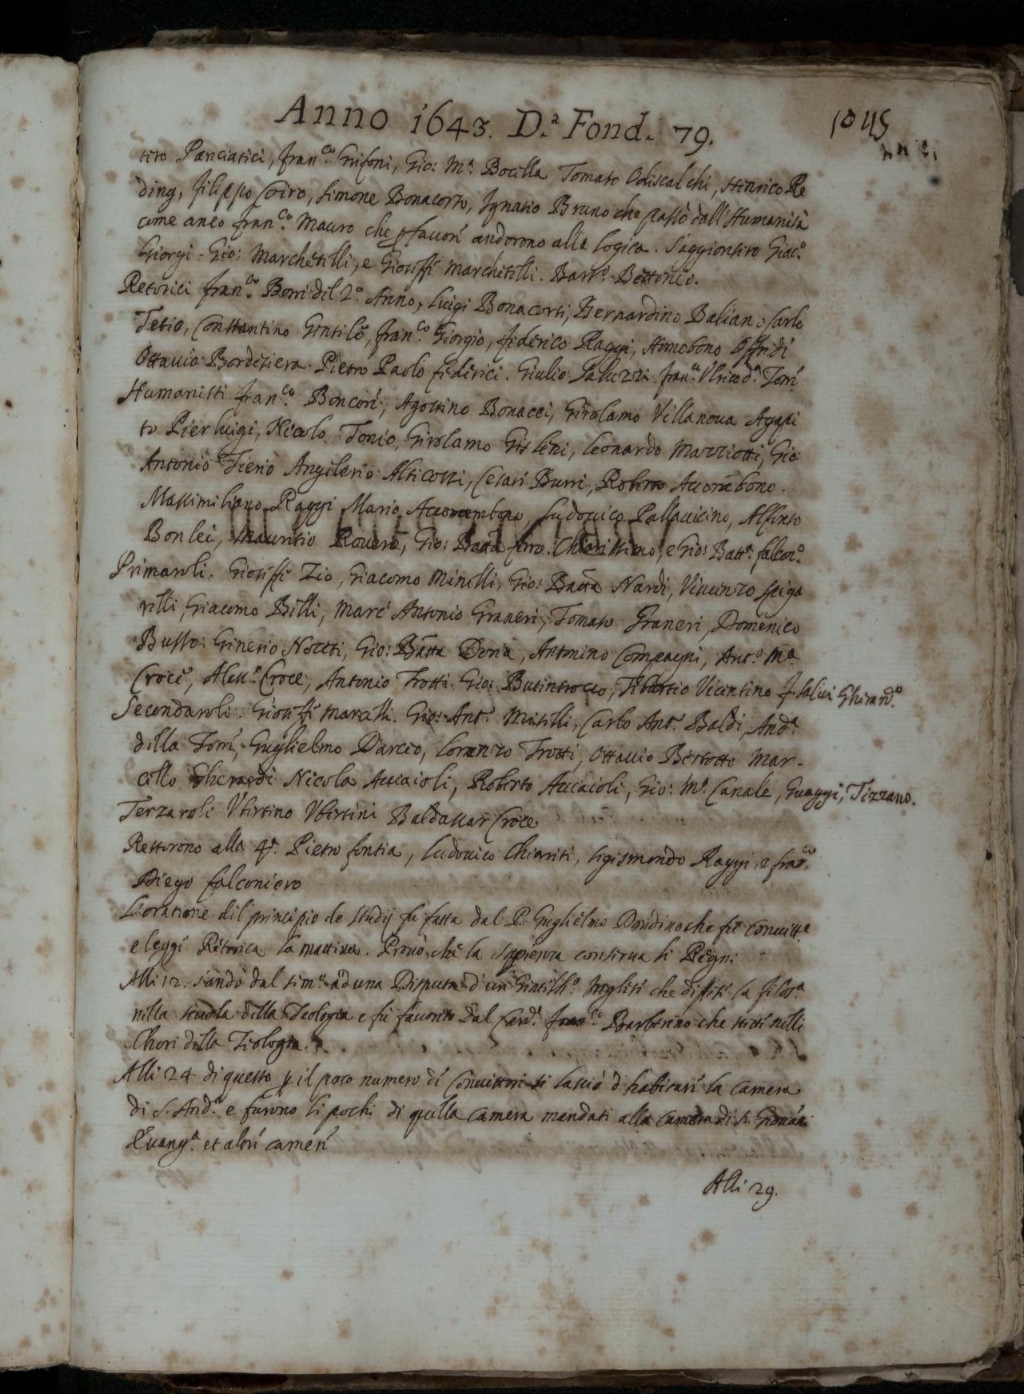 Anno 1643. D.ª Fond. 79.
1045
tiro Panciatici, fran.co Grifoni, Gio: M.ª Bocilla Tomaso Odiscalchi, Henrico Re
ding, filippo Coiro, Simone Bonacorso, Ignatio Bruno che passò dall'Humanità
come anco fran.co Mauro che p favori andorono alla logica. Saggiontivo Giac.o
Giorgi. Gio: Marchetelli, e Gioseffi Marchetelli. Barr.
Retorici fran.co Berri del 2.o Anno, Luigi Bonacorsi, Bernardino Balian. Carlo
Tetio, Constantino Gentile, fran.co Giorgio, federico Raggi, Homobono Offredi
Ottavio Bordiziera Pietro Paolo federici. Giulio Saluzzi fran.co
Humanisti fran.co Boncori, Agostino Bonacci, Girolamo Villanova Agapi
to Pierluigi, Nicolo Tonio, Girolamo Gisleni, Leonardo Mazziotti, Gio:
Antonio Fierio Angilerio Alticozzi, Cesari Burri, Roberto Accorabono.
Massimiliano Raggi Mario Accorambono, Ludovico Pallavicino, Alfonso
Bonlei, Mauritio Rovero, Gio: Batta ferro. Chiarissimo, e Gio: Batt.a falcon.o
Primaroli. Gioseffi Zio, Giacomo Minelli, Gio: Batta Nardi, Vincenzo Spiga
relli, Giacomo Billi, Marc' Antonio Graneri, Tomaso Graneri, Domenico
Busso: Ginesio Noceti, Gio: Batta Doria, Antonino Compagni, Ant.o M.a
Croce, Aless.o Croce, Antonio Trotti Gio: Tiburtio Vicentino Salici Ghirard.o
Secondaroli. Gioseffi Marcelli. Gio: Ant.o Mitelli, Carlo Ant.o Baldi, And.a
della Torri, Guglielmo Darcio, Lorenzo Trotti, Ottavio Bertotto Mar-
cello Gherardi Nicola Acciaioli, Roberto Acciaioli, Gio: M.a Canale, Guaggi, Tizzano.
Terzaroli Ubertino Ubertini Baldassar Croce
Restorono alla 4.a Pietro fontia, Ludovico Chiariti, Sigismondo Raggi, e fran.co
Diego falconiero
L'oratione del principio de studij fu fatta dal P. Guglielmo Dondino che fu convitt.e
e leggi Retorica la mattina. Provò che la Sapienza conserva li Regni
Alli 12. s'andò dal Sem.o ad una Disputa d'un Gentilh.o Inglesi che difesi la filos.a
nella scuola della Teologia e fu favorito dal Card. fran.co Barberino che stetti nelli
Chori della Teologia.
Alli 24 di questo p il poco numero di Convittori si lasciò d'habitari la camera
di S. And.a e furono li pochi di quella camera mandati alla camera di S. Giovani
Evang.a et altri cameri
Alli 29.